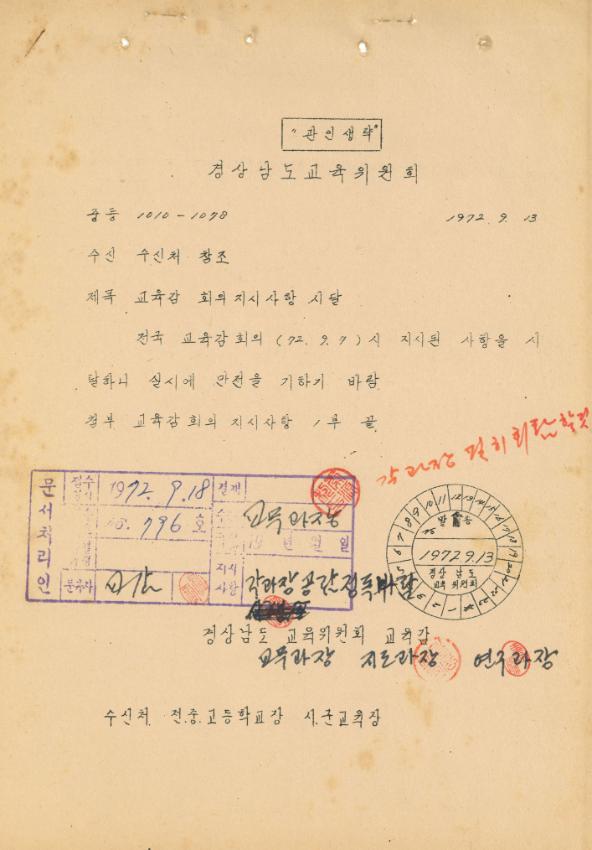 "관인생략"
경상남도교육위원회
중등 1010-1078 1972. 9. 13
수신 수신처 참조
제목 교육감 회의지시사항 시달
전국 교육감회의 (72. 9. 7) 시 지시된 사항을 시
달하니 실시에 만전을 기하기 바람
첨부 교육감회의지시사항 1부 끝
각과장 필히 회람할것
문서처리인
접수
1972. 9. 18
결재
796 호
교무과장
19 년 월 일
분류자
교감
지시
사항
각과장 공람 정독바람
1972 9.13
경상남도
교육위원회
경상남도 교육위원회 교육감
교무과장 지도과장 연구과장
수신처 전.중.고등학교장 시.군교육장